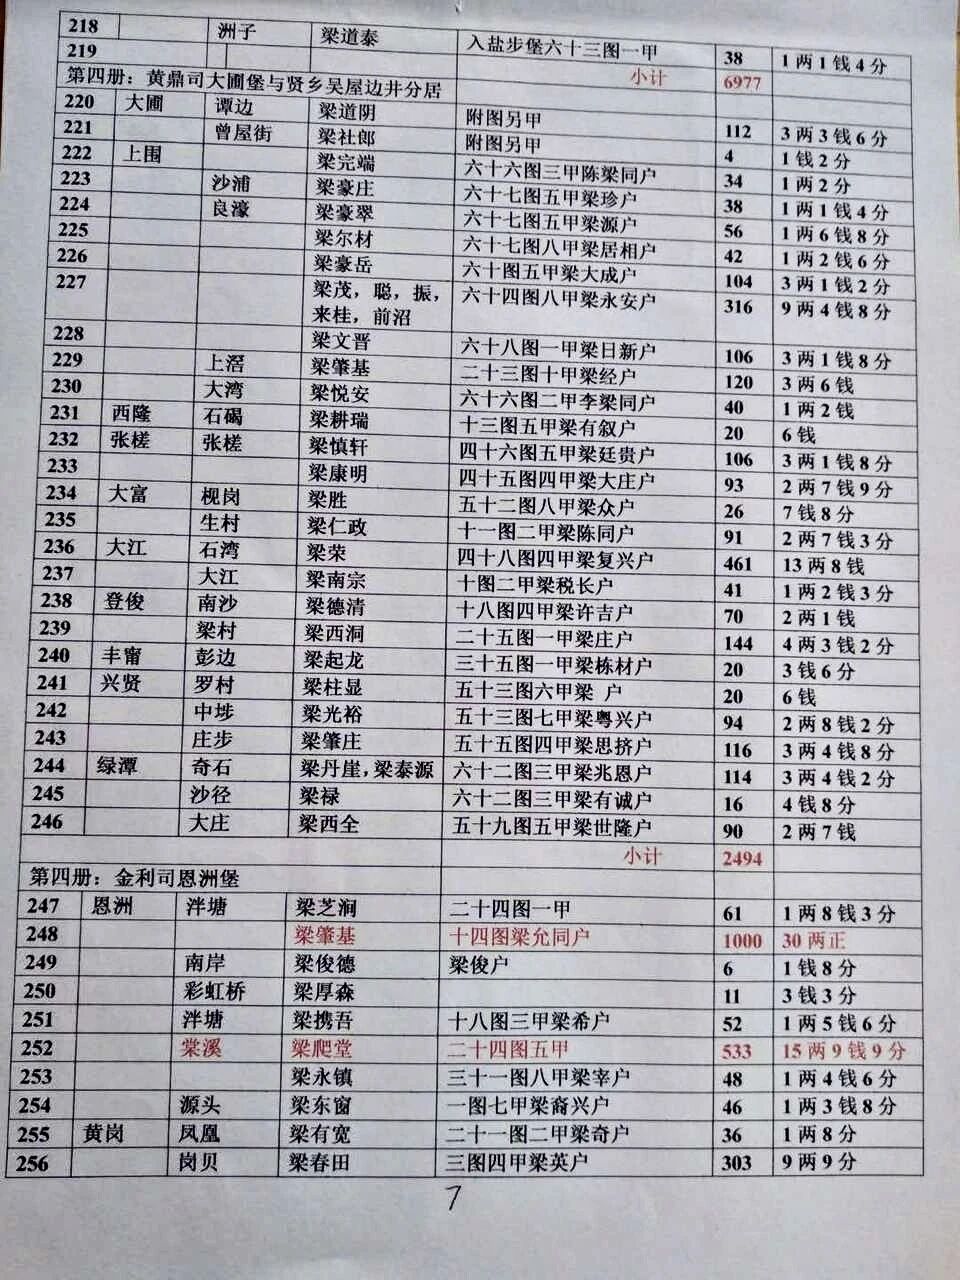 218 洲子 梁道泰 入盐步堡六十三图一甲 38 1两1钱4分
219 小计 6977
第四册：黄鼎司大圃堡与贤乡吴屋边井分居
220 大圃 谭边 梁道阴 附图另甲 112 3两3钱6分
221 曾屋街 梁社郎 附图另甲 4 1钱2分
222 上围 梁完端 六十六图三甲陈梁同户 34 1两2分
223 沙浦 梁豪庄 六十七图五甲梁珍户 38 1两1钱4分
224 良濠 梁豪翠 六十七图五甲梁源户 56 1两6钱8分
225 梁尔材 六十七图八甲梁居相户 42 1两2钱6分
226 梁豪岳 六十图五甲梁大成户 104 3两1钱2分
227 梁茂，聪，振， 六十四图八甲梁永安户 316 9两4钱8分
来桂，前沼
228 梁文晋 六十八图一甲梁日新户 106 3两1钱8分
229 上滘 梁肇基 二十三图十甲梁经户 120 3两6钱
230 大湾 梁悦安 六十六图二甲李梁同户 40 1两2钱
231 西隆 石碣 梁耕瑞 十三图五甲梁有叙户 20 6钱
232 张槎 张槎 梁慎轩 四十六图五甲梁廷贵户 106 3两1钱8分
233 梁康明 四十五图四甲梁大庄户 93 2两7钱9分
234 大富 枧岗 梁胜 五十二图八甲梁众户 26 7钱8分
235 生村 梁仁政 十一图二甲梁陈同户 91 2两7钱3分
236 大江 石湾 梁荣 四十八图四甲梁复兴户 461 13两8钱
237 大江 梁南宗 十图二甲梁税长户 41 1两2钱3分
238 登俊 南沙 梁德清 十八图四甲梁许吉户 70 2两1钱
239 梁村 梁西洞 二十五图一甲梁庄户 144 4两3钱2分
240 丰甯 彭边 梁起龙 三十五图一甲梁栋材户 20 3钱6分
241 兴贤 罗村 梁柱显 五十三图六甲梁 户 20 6钱
242 中埗 梁光裕 五十三图七甲梁粤兴户 94 2两8钱2分
243 庄步 梁肇庄 五十五图四甲梁思挤户 116 3两4钱8分
244 绿潭 奇石 梁丹崖，梁泰源 六十二图三甲梁兆恩户 114 3两4钱2分
245 沙径 梁禄 六十二图三甲梁有诚户 16 4钱8分
246 大庄 梁西全 五十九图五甲梁世隆户 90 2两7钱
小计 2494
第四册：金利司恩洲堡
247 恩洲 泮塘 梁芝涧 二十四图一甲 61 1两8钱3分
248 梁肇基 十四图梁允同户 1000 30两正
249 南岸 梁俊德 梁俊户 6 1钱8分
250 彩虹桥 梁厚森 11 3钱3分
251 泮塘 梁携吾 十八图三甲梁希户 52 1两5钱6分
252 棠溪 梁爬堂 二十四图五甲 533 15两9钱9分
253 梁永镇 三十一图八甲梁宰户 48 1两4钱6分
254 源头 梁东窗 一图七甲梁裔兴户 46 1两3钱8分
255 黄岗 凤凰 梁有宽 二十一图二甲梁奇户 36 1两8分
256 岗贝 梁春田 三图四甲梁英户 303 9两9分
7